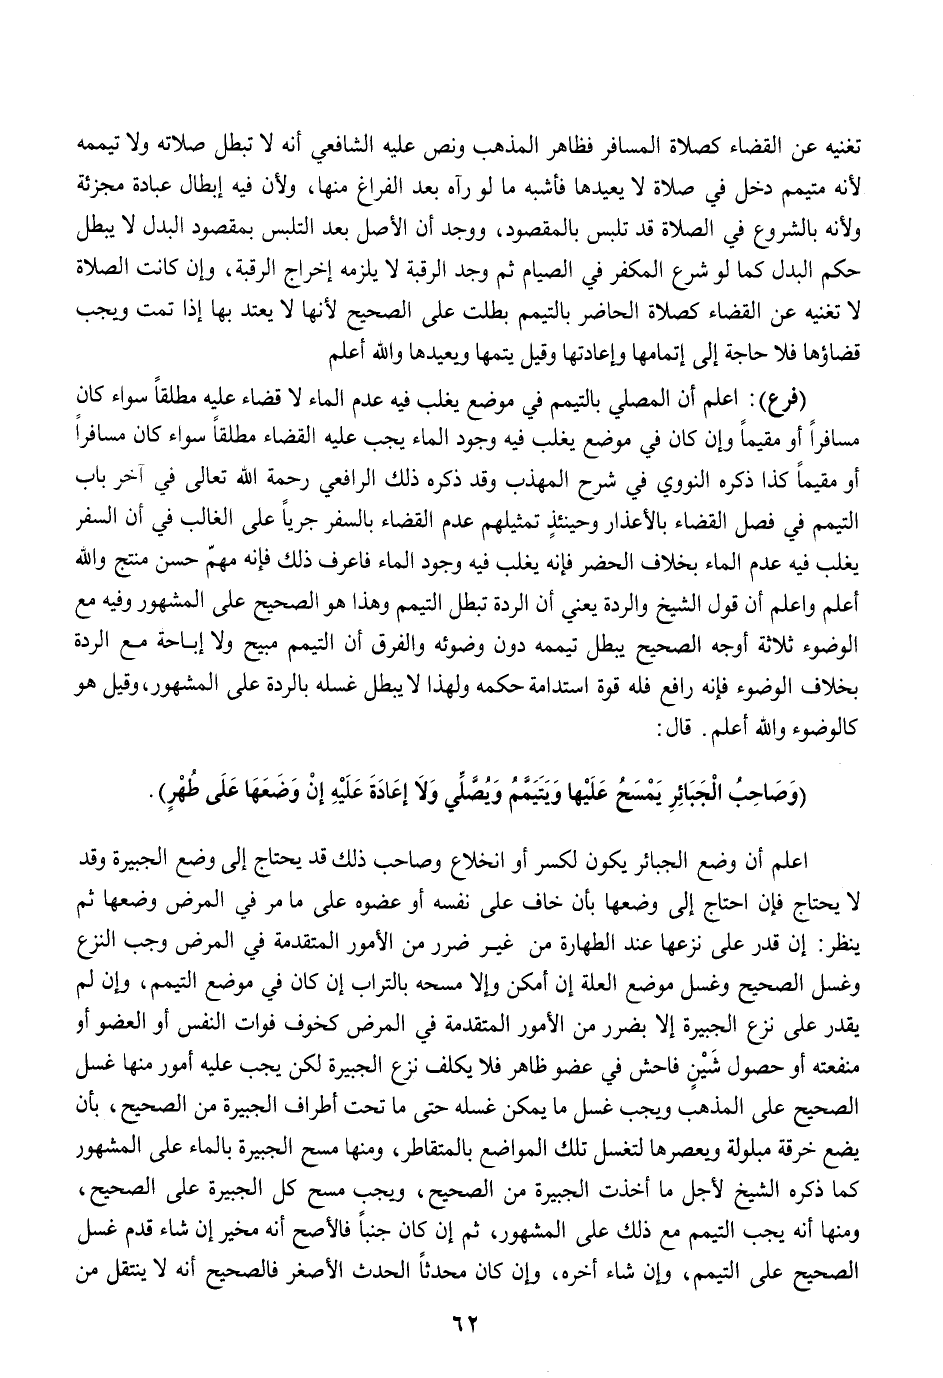 تغنيه عن القضاء كصلاة المسافر فظاهر المذهب ونص عليه الشافعي أنه لا تبطل صلاته ولا تيممه
لأنه متيمم دخل في صلاة لا يعيدها فأشبه ما لو رآه بعد الفراغ منها، ولأن فيه إبطال عبادة مجزئة
ولأنه بالشروع في الصلاة قد تلبس بالمقصود، ووجد أن الأصل بعد التلبس بمقصود البدل لا يبطل
حكم البدل كما لو شرع المكفر في الصيام ثم وجد الرقبة لا يلزمه إخراج الرقبة، وإن كانت الصلاة
لا تغنيه عن القضاء كصلاة الحاضر بالتيمم بطلت على الصحيح لأنها لا يعتد بها إذا تمت ويجب
قضاؤها فلا حاجة إلى إتمامها وإعادتها وقيل يتمها ويعيدها والله أعلم
(فرع): اعلم أن المصلي بالتيمم في موضع يغلب فيه عدم الماء لا قضاء عليه مطلقاً سواء كان
مسافراً أو مقيماً وإن كان في موضع يغلب فيه وجود الماء يجب عليه القضاء مطلقاً سواء كان مسافراً
أو مقيماً كذا ذكره النووي في شرح المهذب وقد ذكره ذلك الرافعي رحمة الله تعالى في آخر باب
التيمم في فصل القضاء بالأعذار وحينئذٍ تمثيلهم عدم القضاء بالسفر جرياً على الغالب في أن السفر
يغلب فيه عدم الماء بخلاف الحضر فإنه يغلب فيه وجود الماء فاعرف ذلك فإنه مهمّ حسن منتج والله
أعلم واعلم أن قول الشيخ والردة يعني أن الردة تبطل التيمم وهذا هو الصحيح على المشهور وفيه مع
الوضوء ثلاثة أوجه الصحيح يبطل تيممه دون وضوئه والفرق أن التيمم مبيح ولا إباحة مع الردة
بخلاف الوضوء فإنه رافع فله قوة استدامة حكمه ولهذا لا يبطل غسله بالردة على المشهور، وقيل هو
كالوضوء والله أعلم. قال:
(وَصَاحِبُ الْجَبَائِرِ يَمْسَحُ عَلَيْها وَيَتَيَمَّمُ وَيُصَّلِّي وَلاَ إعَادَةَ عَلَيْهِ إنْ وَضَعَهَا عَلَى طُهْرٍ).
اعلم أن وضع الجبائر يكون لكسر أو انخلاع وصاحب ذلك قد يحتاج إلى وضع الجبيرة وقد
لا يحتاج فإن احتاج إلى وضعها بأن خاف على نفسه أو عضوه على ما مر في المرض وضعها ثم
ينظر: إن قدر على نزعها عند الطهارة من غير ضرر من الأمور المتقدمة في المرض وجب النزع
وغسل الصحيح وغسل موضع العلة إن أمكن وإلا مسحه بالتراب إن كان في موضع التيمم، وإن لم
يقدر على نزع الجبيرة إلا بضرر من الأمور المتقدمة في المرض كخوف فوات النفس أو العضو أو
منفعته أو حصول شَيْنٍ فاحش في عضو ظاهر فلا يكلف نزع الجبيرة لكن يجب عليه أمور منها غسل
الصحيح على المذهب ويجب غسل ما يمكن غسله حتى ما تحت أطراف الجبيرة من الصحيح، بأن
يضع خرقة مبلولة ويعصرها لتغسل تلك المواضع بالمتقاطر، ومنها مسح الجبيرة بالماء على المشهور
كما ذكره الشيخ لأجل ما أخذت الجبيرة من الصحيح، ويجب مسح كل الجبيرة على الصحيح،
ومنها أنه يجب التيمم مع ذلك على المشهور، ثم إن كان جنباً فالأصح أنه مخير إن شاء قدم غسل
الصحيح على التيمم، وإن شاء أخره، وإن كان محدثاً الحدث الأصغر فالصحيح أنه لا ينتقل من
٦٢